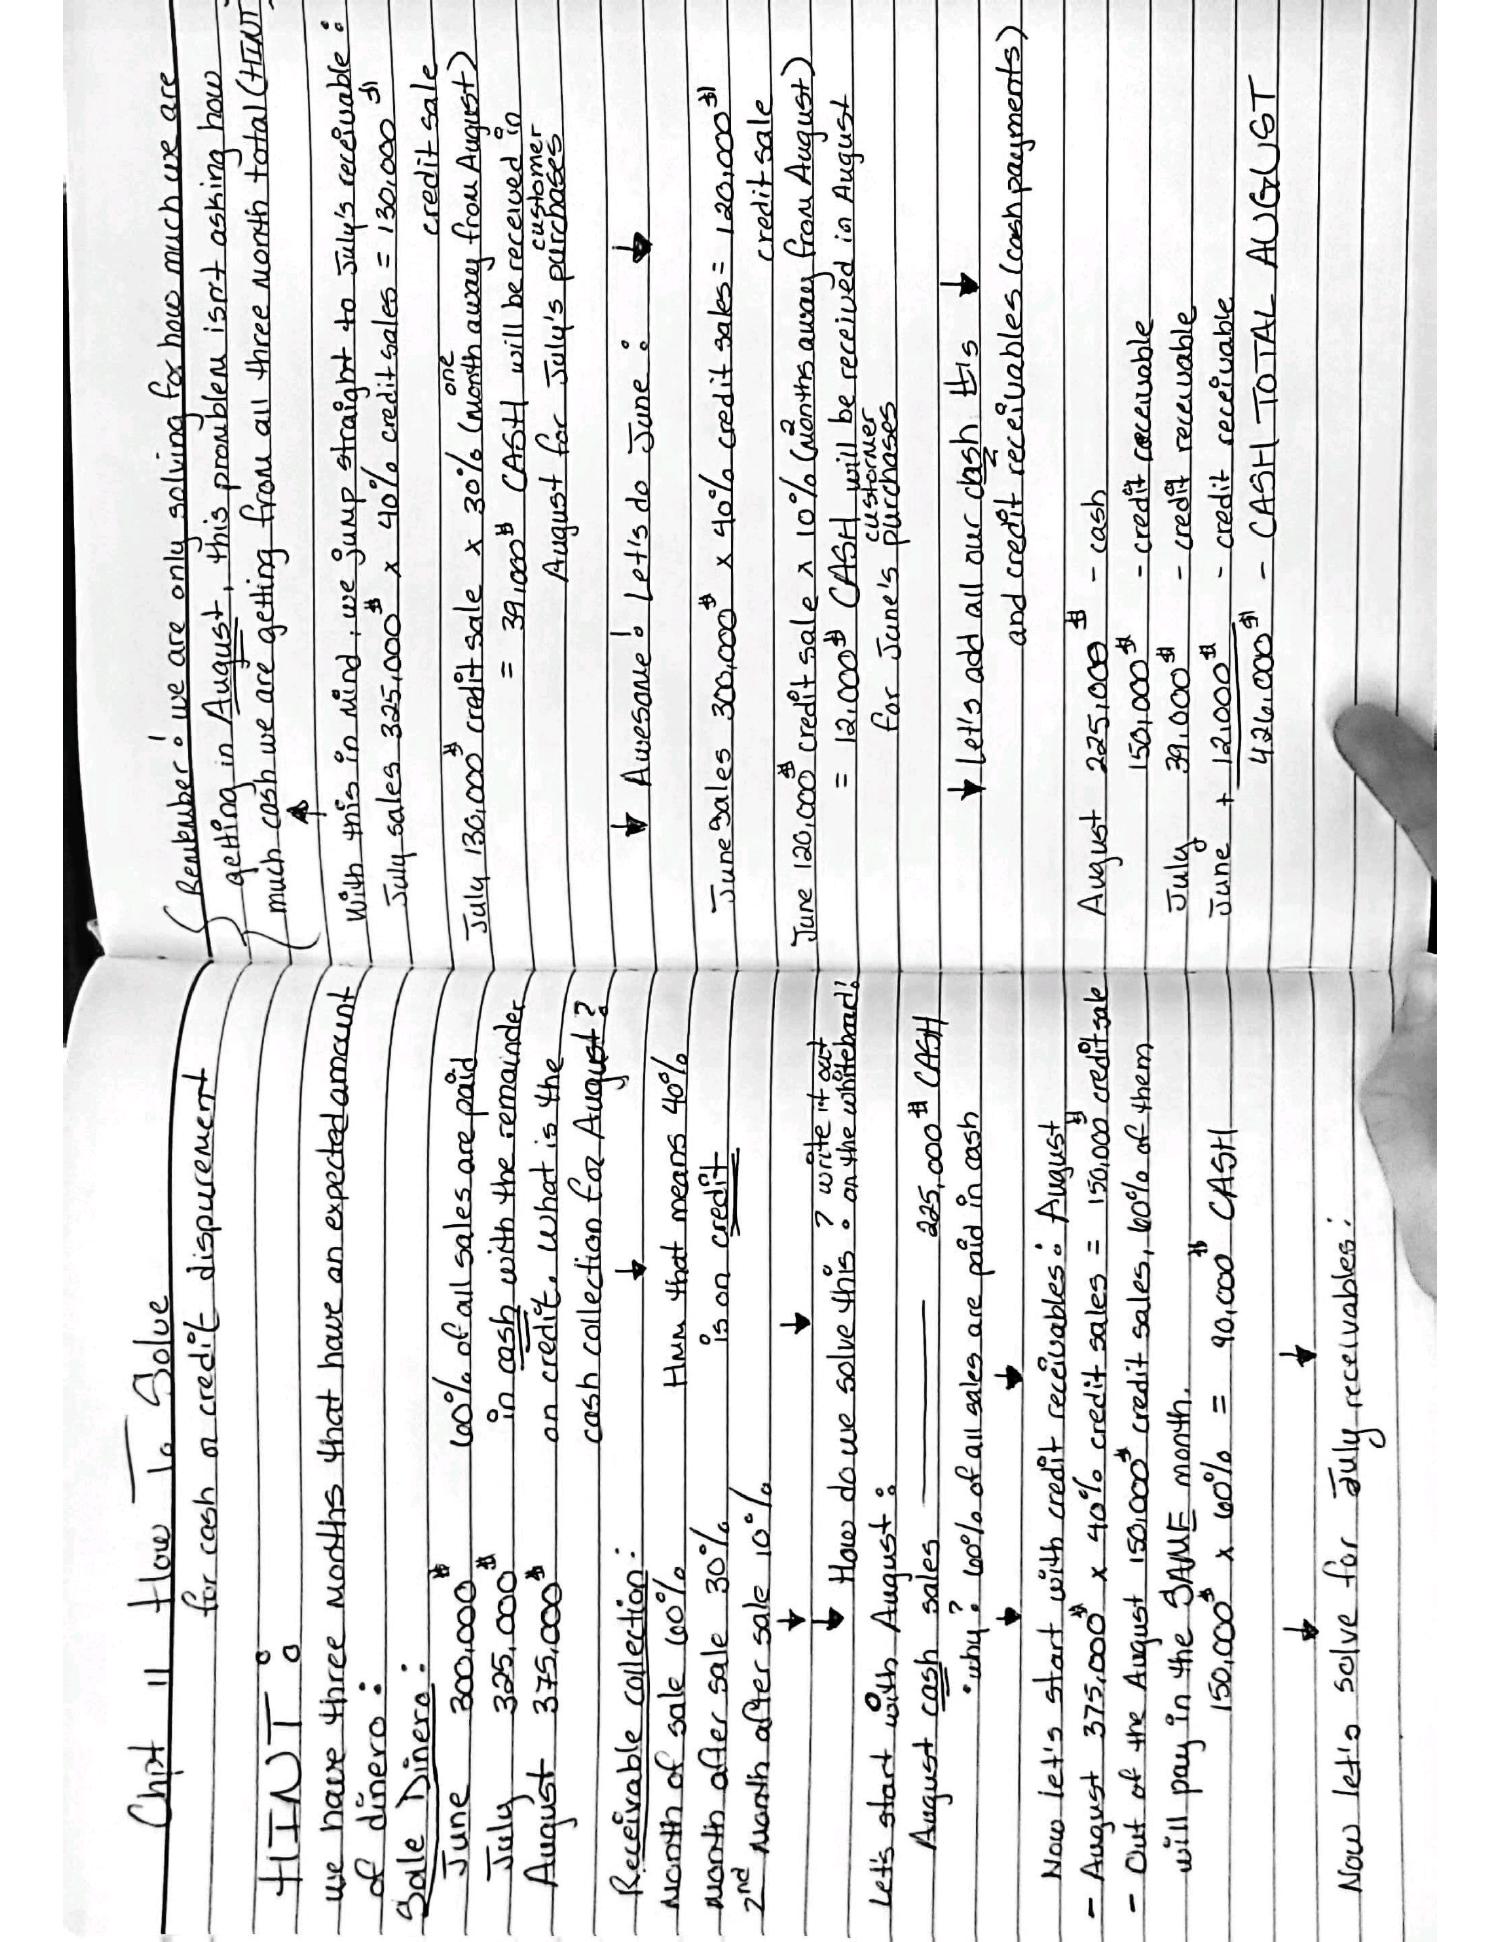 Chpt 11 How To Solve
for cash or credit dispurement
HINT:
we have three months that have an expected amount
of dinero:
Sale Dinero:
June 300,000$
July 325,000$
August 375,000$
60% of all sales are paid
in cash with the remainder
on credit. What is the
cash collection for August?
Receivable collection:
Month of sale 60%
Month after sale 30%
2nd Month after sale 10%
Hmm that means 40%
is on credit
How do we solve this? write it out
on the whiteboard!
Let's start with August:
August cash sales 225,000$ CASH
• why? 60% of all sales are paid in cash
Now let's start with credit receivables: August
- August 375,000$ x 40% credit sales = 150,000$ credit sale
- Out of the August 150,000$ credit sales, 60% of them
will pay in the SAME month.
150,000$ x 60% = 90,000$ CASH
Now let's solve for July receivables:
Remember! we are only solving for how much we are
getting in August, this promblem isn't asking how
much cash we are getting from all three month total (HINT
With this in mind, we jump straight to July's receivable:
July sales 325,000$ x 40% credit sales = 130,000$
credit sale
July 130,000$ credit sale x 30% (one month away from August)
= 39,000$ CASH will be received in
August for July's customer purchases
Awesome! Let's do June:
June Sales 300,000$ x 40% credit sales = 120,000$
credit sale
June 120,000$ credit sale x 10% (2 months away from August)
= 12,000$ CASH will be received in August
for June's customer purchases
Let's add all our cash #'s
and credit receivables (cash payments)
August 225,000$ - cash
150,000$ - credit receivable
July 39,000$ - credit receivable
June + 12,000$ - credit receivable
426,000$ - CASH TOTAL AUGUST